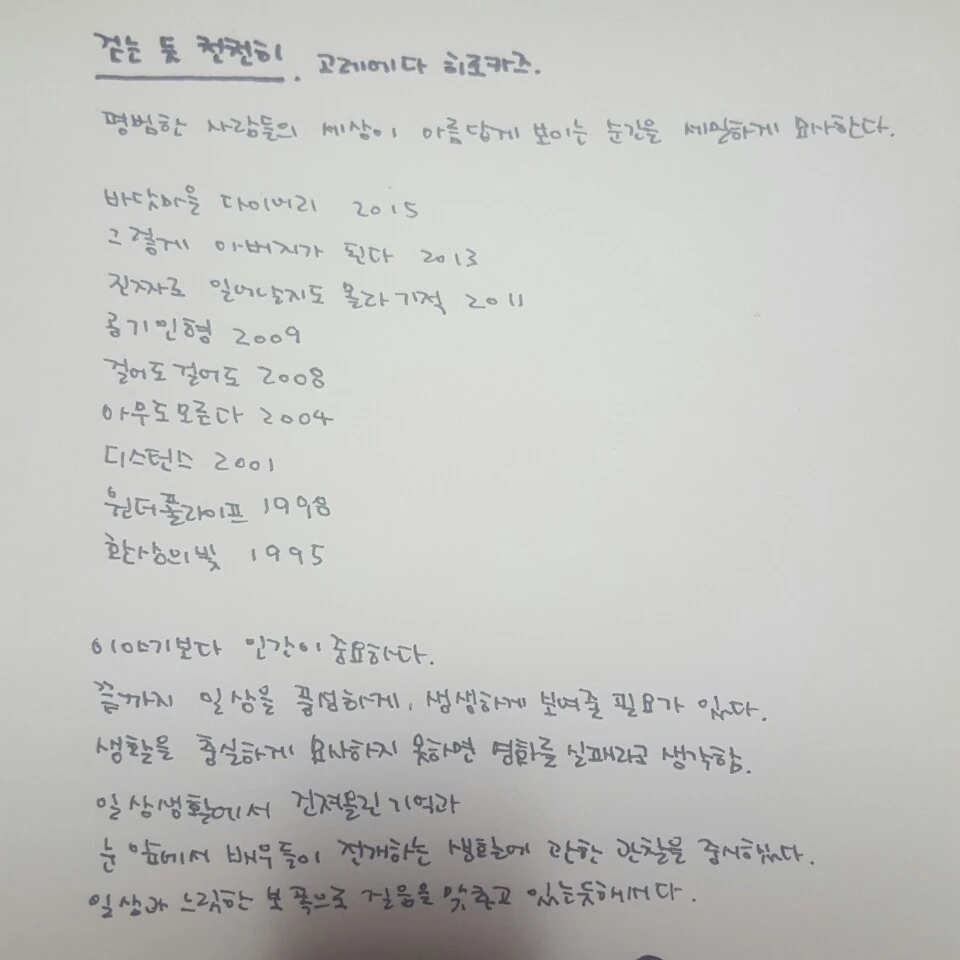 걷는 듯 천천히. 고레에다 히로카즈.
평범한 사람들의 세상이 아름답게 보이는 순간을 세밀하게 묘사한다.
바닷마을 다이어리 2015
그렇게 아버지가 된다 2013
진짜로 일어날지도 몰라 기적 2011
공기인형 2009
걸어도 걸어도 2008
아무도 모른다 2004
디스턴스 2001
원더풀라이프 1998
환상의 빛 1995
이야기보다 인간이 중요하다.
끝까지 일상을 풍성하게, 생생하게 보여줄 필요가 있다.
생활을 충실하게 묘사하지 못하면 영화를 실패라고 생각함.
일상생활에서 건져올린 기억과
눈 앞에서 배우들이 전개하는 생활에 관한 관찰을 중시했다.
일상과 느릿한 보폭으로 걸음을 맞추고 있는듯해서다.